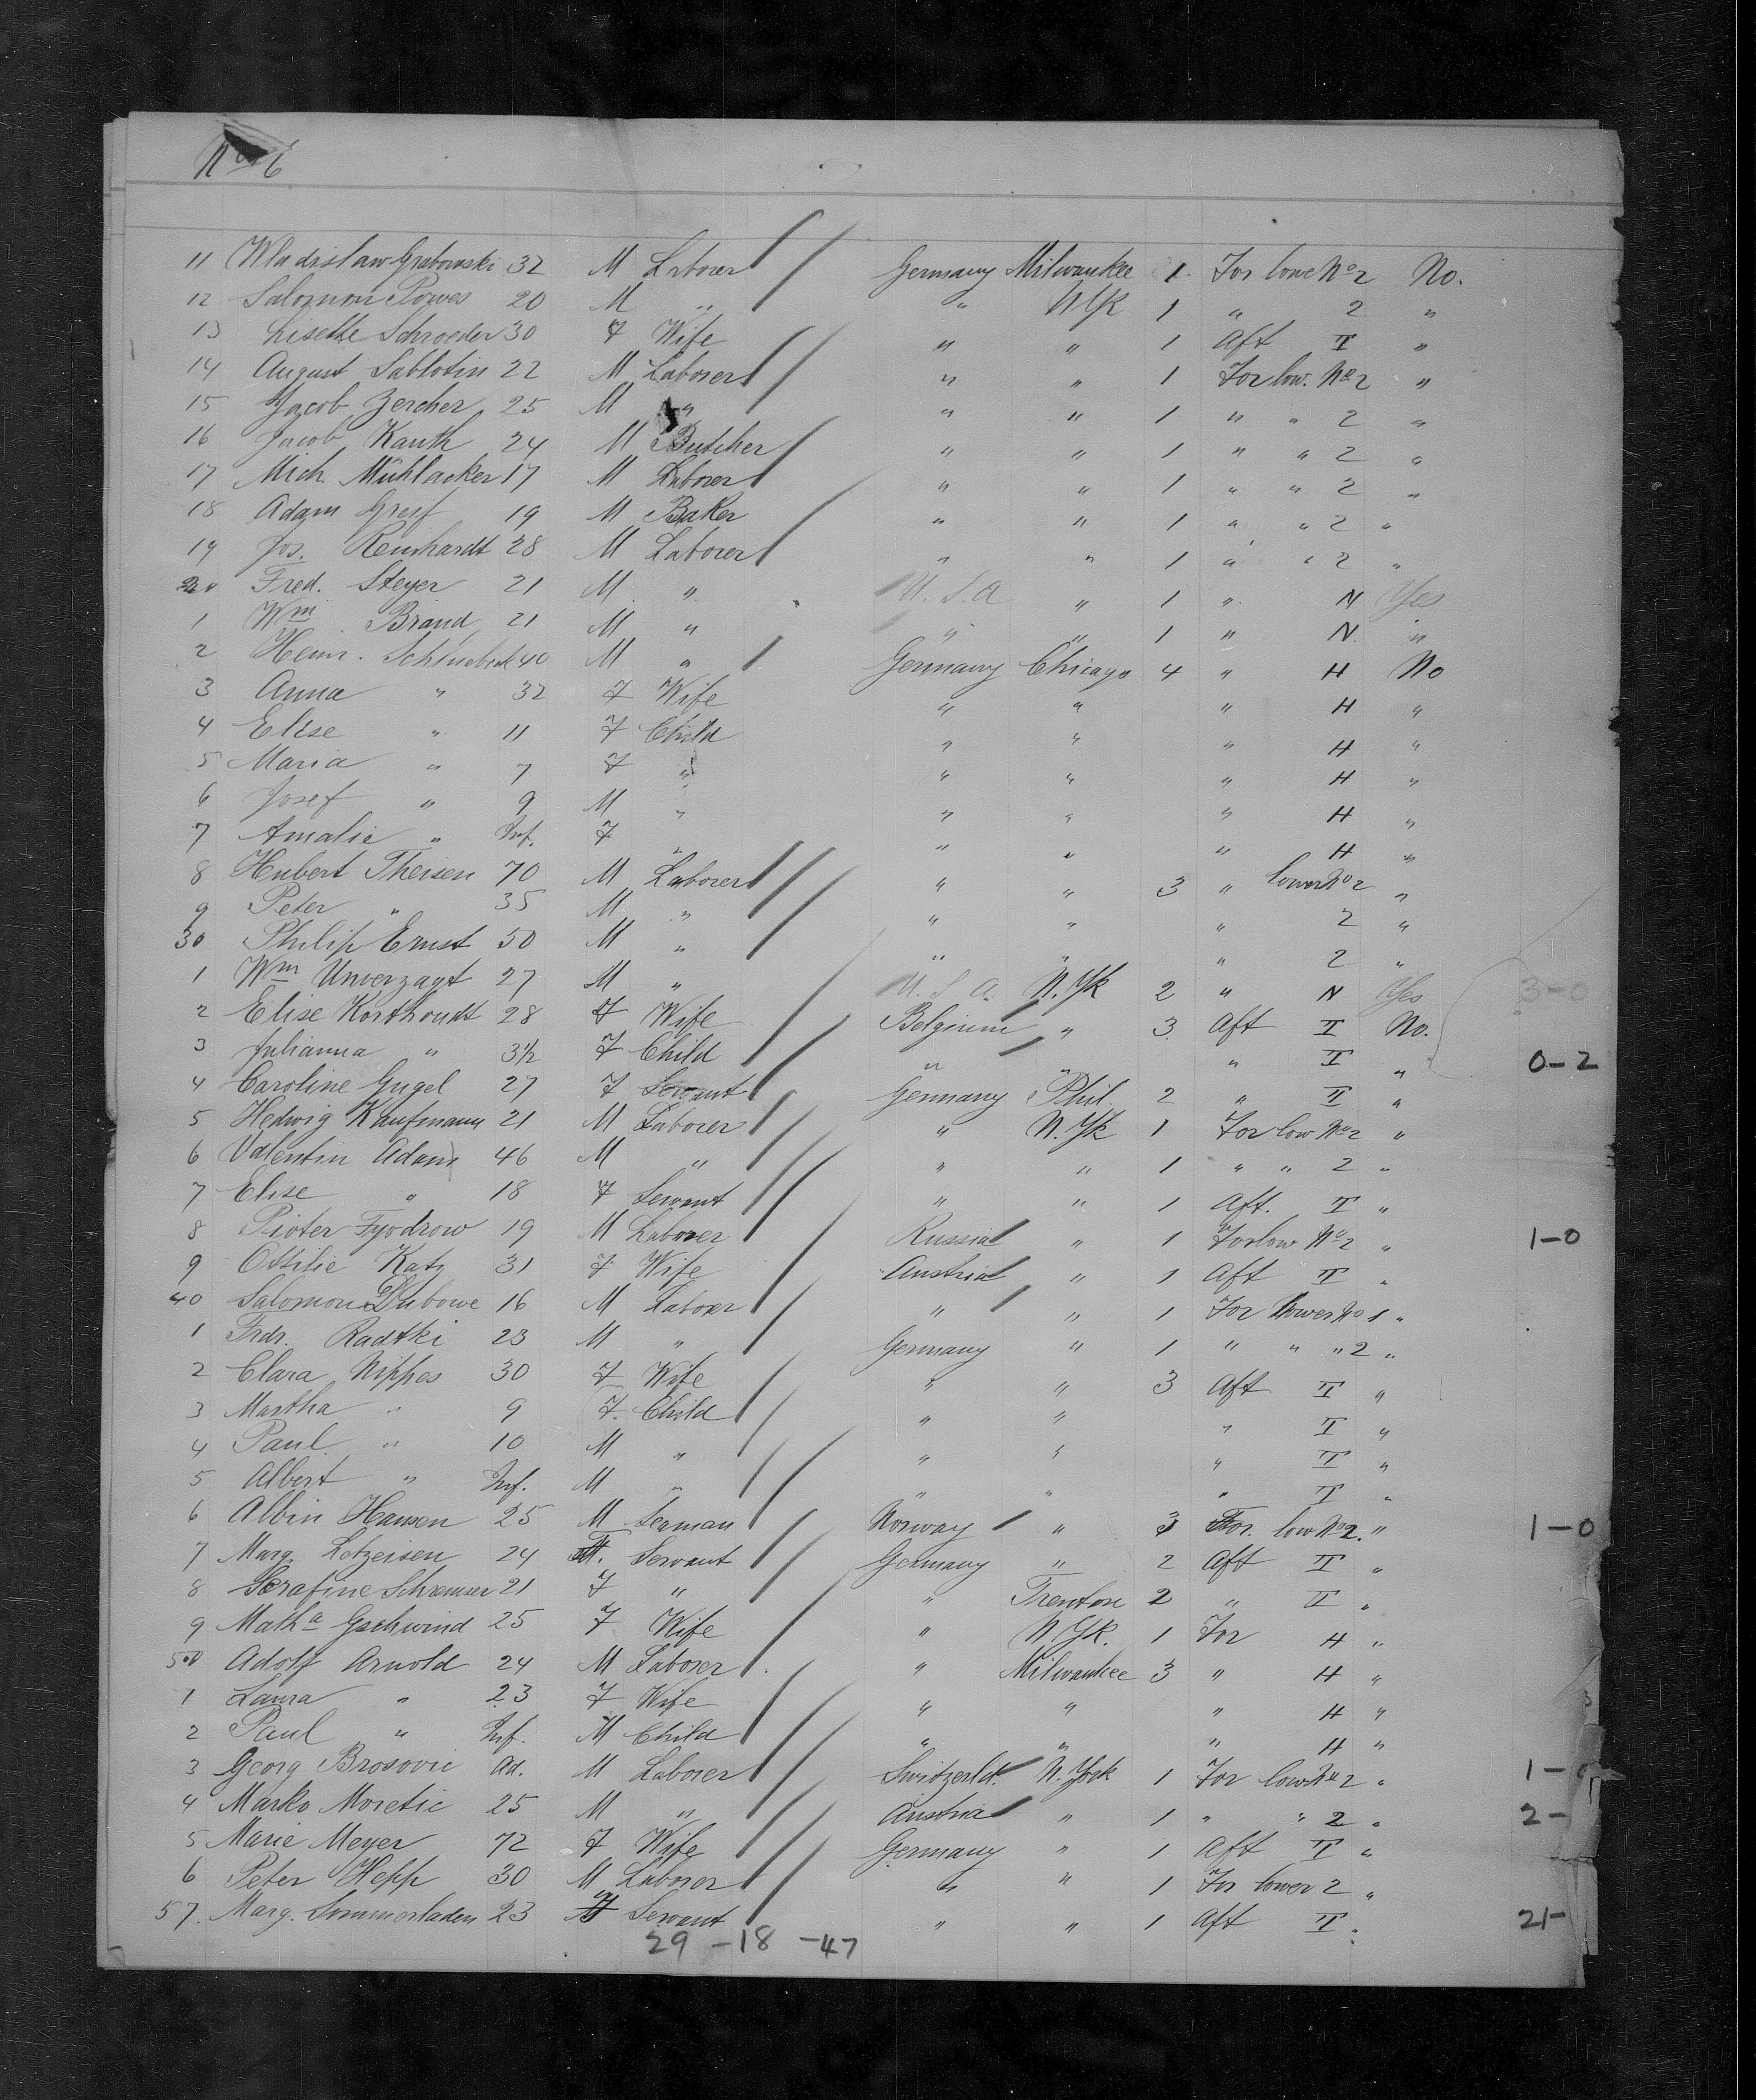 No 6
11 Wladislaw Grabowski 32 M Laborer Germany Milwaukee 1 For lowe No 2 No.
12 Salomon Powes 20 M " " N Yk 1 " 2 "
13 Lisette Schroeder 30 F Wife " " 1 Aft II "
14 August Sablotin 22 M Laborer " " 1 For low. No 2 "
15 Jacob Zercher 25 M " " " 1 " " 2 "
16 Jacob Kauth 24 M Butcher " " 1 " " 2 "
17 Mich. Mühlacker 17 M Laborer " " 1 " " 2 "
18 Adam Greif 19 M Baker " " 1 " " 2 "
19 Jos. Reinhardt 28 M Laborer " " 1 " " 2 "
20 Fred. Steyer 21 M " U.S.A " 1 " N Yes
1 Wm Brand 21 M " " " 1 " N "
2 Heinr. 40 M " Germany Chicago 4 " H No
3 Anna " 32 F Wife " " " H "
4 Elise " 11 F Child " " " H "
5 Maria " 7 F " " " " H "
6 Josef " 9 M " " " " H "
7 Amalie " Inf. F " " " " H "
8 Hubert Theisen 70 M Laborer " " 3 " lower No 2 "
9 Peter " 35 M " " " " 2 "
30 Philip Ernst 50 M " " " " 2 "
1 Wm Unverzagt 27 M " U.S.A. N. Yk 2 " N Yes 3-0
2 Elise Korthoudt 28 F Wife Belgium " 3 Aft II No.
3 Julianna " 3 1/2 F Child " " " II " 0-2
4 Caroline Gugel 27 F Servant Germany Phil. 2 " II "
5 Hedwig Kaufmann 21 M Laborer " N. Yk 1 For low No 2 "
6 Valentin Adam 46 M " " " 1 " " 2 "
7 Elise " 18 F Servant " " 1 Aft. II "
8 Pioter Fyodrow 19 M Laborer Russia " 1 For low No 2 " 1-0
9 Ottilie Katz 31 F Wife Austria " 1 Aft II "
40 Salomon Dubowe 16 M Laborer " " 1 For lower No 1 "
1 Frdr. Radtki 23 M " Germany " 1 " " " 2 "
2 Clara Nippes 30 F Wife " " 3 Aft II "
3 Martha " 9 F. Child " " " II "
4 Paul " 10 M " " " " II "
5 Albert " Inf. M " " " " II "
6 Albin Hansen 25 M Seaman Norway " 3 For. low No 2. " 1-0
7 Marg. Letzeisen 24 F. Servant Germany " 2 Aft II "
8 Serafine 21 F " " Trenton 2 " II "
9 Matha Gschwind 25 F Wife " N. Yk. 1 For H "
50 Adolf Arnold 24 M Laborer " Milwaukee 3 " H "
1 Laura " 23 F Wife " " " H "
2 Paul " Inf. M Child " " " H "
3 Georg Brosovic Ad. M Laborer Switzerld. N. York 1 For low No 2 " 1-0
4 Marko Moretic 25 M " Austria " 1 " " 2 " 2-
5 Marie Meyer 72 F Wife Germany " 1 Aft II "
6 Peter Hepp 30 M Laborer " " 1 For lower 2 "
57. Marg. Sommerladen 23 F Servant " " 1 Aft II " 21-
29 - 18 - 47